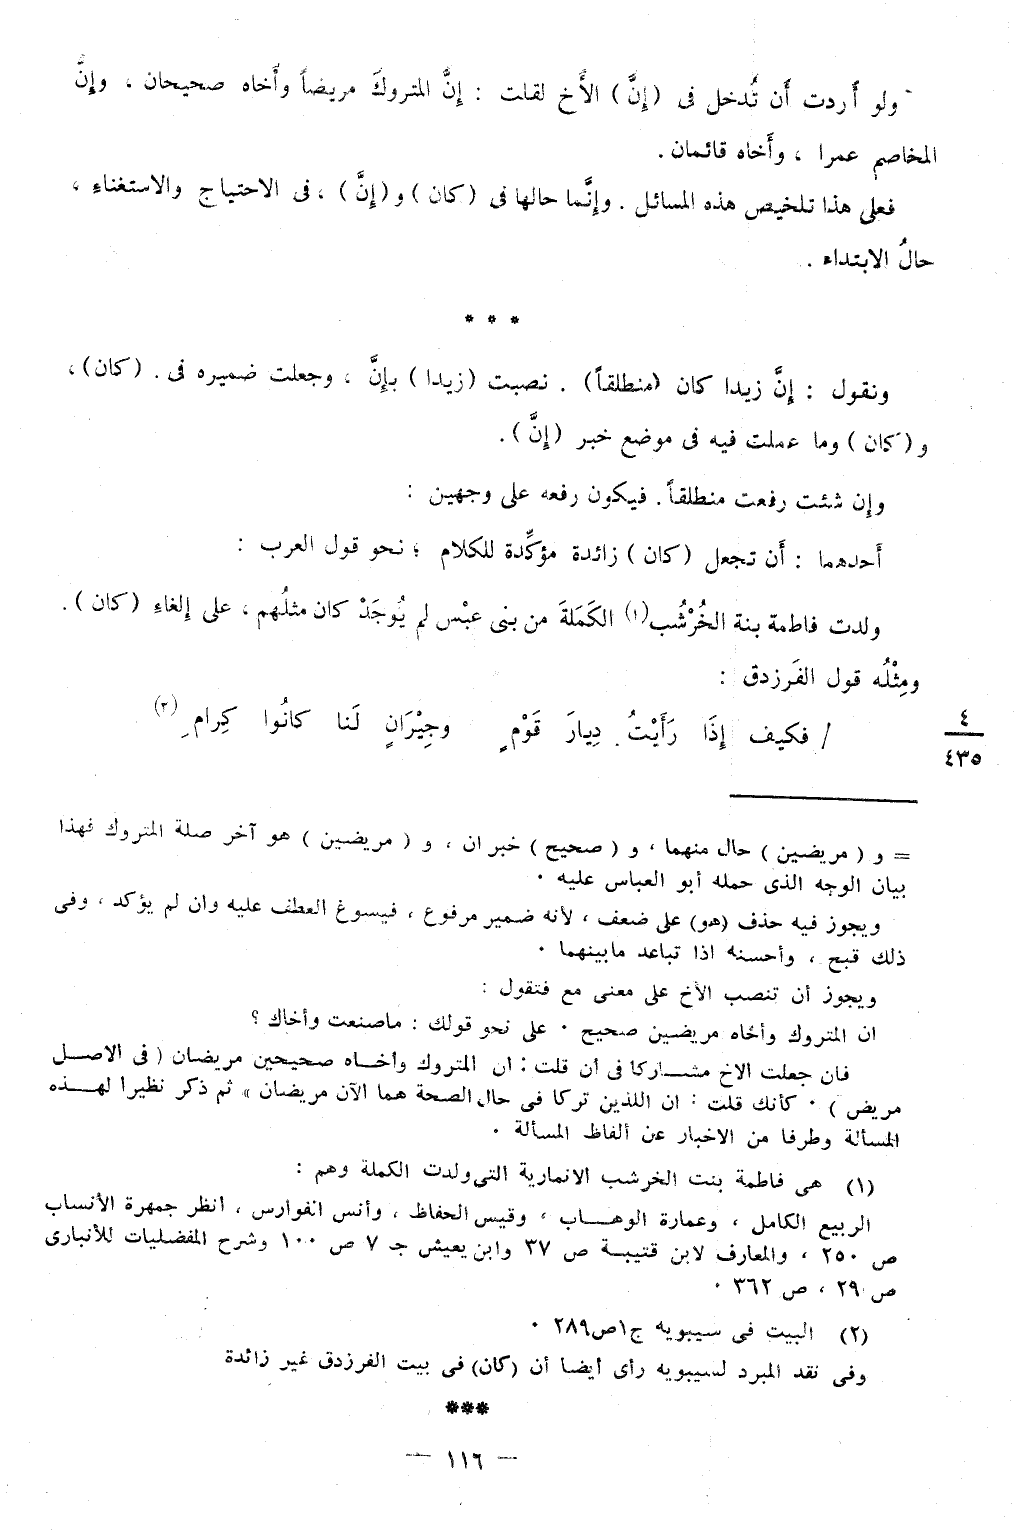 ولو أَردت أَن تُدخل فى (إِنَّ) الأَخ لقلت : إِنَّ المتروكَ مريضاً وأَخاه صحيحان ، وإِنَّ
المخاصم عمرا ، وأَخاه قائمان .
فعلى هذا تلخيص هذه المسائل . وإِنَّما حالها فى (كان) و (إِنَّ) ، فى الاحتياج والاستغناءِ ،
حالُ الابتداء .
* * *
ونقول : إِنَّ زيدا كان (منطلقاً) . نصبت (زيدا) بإِنَّ ، وجعلت ضميره فى . (كان) ،
و (كان) وما عملت فيه فى موضع خبر (إِنَّ) .
وإِن شئت رفعت منطلقاً . فيكون رفعه على وجهين :
أَحدهما : أَن تجعل (كان) زائدة مؤكِّدة للكلام ؛ نحو قول العرب :
ولدت فاطمة بنة الخُرْشُب(١) الكَمَلةَ من بنى عبْس لم يُوجَدْ كان مثلُهم ، على إلغاءِ (كان) .
ومِثْلُه قول الفَرزدق :
/ فكيف إِذَا رَأَيْتُ دِيارَ قَوْمٍ وجِيْرَانٍ لَنا كانُوا كِرامِ (٢)
٤
٤٣٥
= و ( مريضين ) حال منهما ، و ( صحيح ) خبر ان ، و ( مريضين ) هو آخر صلة المتروك فهذا
بيان الوجه الذى حمله أبو العباس عليه ٠
ويجوز فيه حذف (هو) على ضعف ، لأنه ضمير مرفوع ، فيسوغ العطف عليه وان لم يؤكد ، وفى
ذلك قبح ، وأحسنه اذا تباعد مابينهما ٠
ويجوز أن تنصب الأخ على معنى مع فتقول :
ان المتروك وأخاه مريضين صحيح ٠ على نحو قولك : ماصنعت وأخاك ؟
فان جعلت الاخ مشـاركا فى أن قلت : ان المتروك وأخـاه صحيحين مريضان ( فى الاصل
مريض ) ٠ كأنك قلت : ان اللذين تركا فى حال الصحة هما الآن مريضان » ثم ذكر نظيرا لهـذه
المسألة وطرفا من الاخبار عن ألفاظ المسألة ٠
(١) هى فاطمة بنت الخرشب الانمارية التى ولدت الكملة وهم :
الربيع الكامل ، وعمارة الوهـاب ، وقيس الحفاظ ، وأنس الفوارس ، انظر جمهرة الأنساب
ص ٢٥٠ ، والمعارف لابن قتيبـة ص ٣٧ وابن يعيش جـ ٧ ص ١٠٠ وشرح المفضليات للأنبارى
ص ٢٩ ، ص ٣٦٢ ٠
(٢) البيت فى سيبويه ج١ص٢٨٩ ٠
وفى نقد المبرد لسيبويه رأى أيضا أن (كان) فى بيت الفرزدق غير زائدة
***
— ١١٦ —